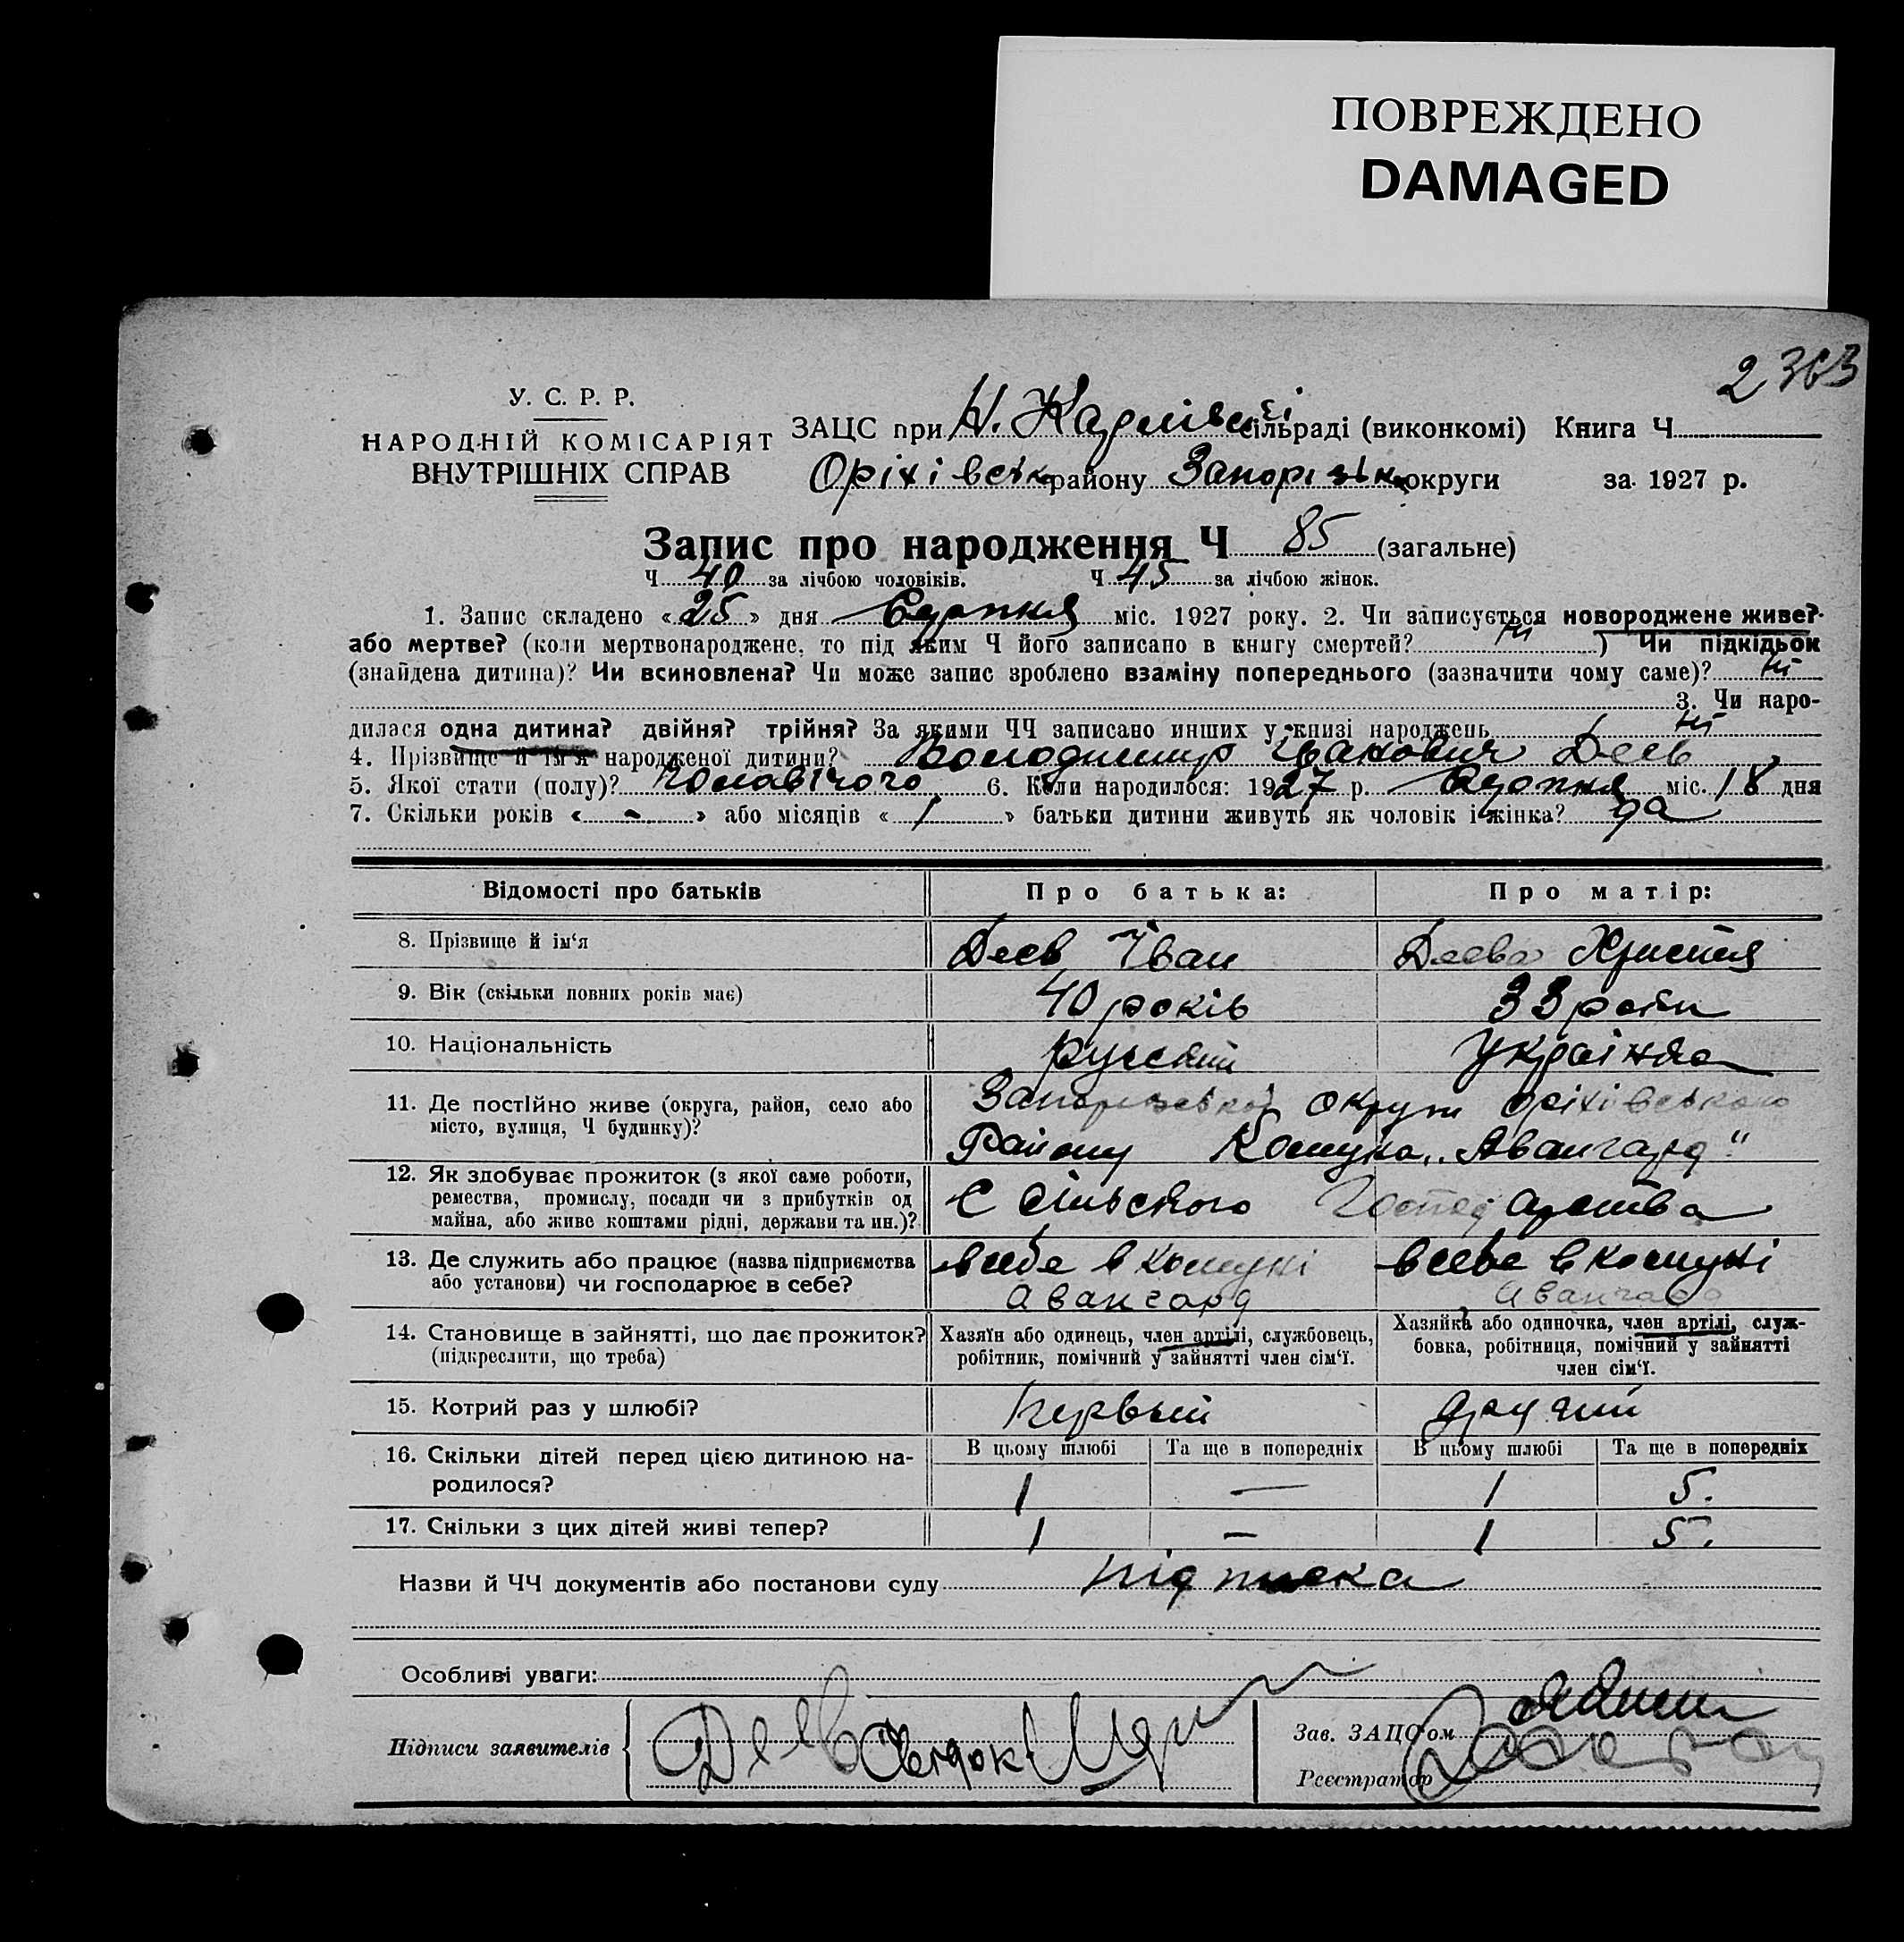 ПОВРЕЖДЕНО
DAMAGED
2363
У. С. Р. Р.
НАРОДНІЙ КОМІСАРІЯТ
ВНУТРІШНІХ СПРАВ
ЗАЦС при Н. сільраді (виконкомі) Книга Ч.
Оріхівськ району Запорізьк округи за 1927 р.
Запис про народження Ч 85 (загальне)
Ч 40 за лічбою чоловіків. Ч 45 за лічбою жінок.
1. Запис складено «25» дня Серпня міс. 1927 року. 2. Чи записується новороджене живе?
або мертве? (коли мертвонароджене, то під яким Ч його записано в книгу смертей? ні ) Чи підкідьок
(знайдена дитина)? Чи всиновлена? Чи може запис зроблено взаміну попереднього (зазначити чому саме)? ні
3. Чи наро-
дилася одна дитина? двійня? трійня? За якими ЧЧ записано инших у книзі народжень ні
4. Прізвище й ім'я народженої дитини? Володимир Іванович Деев
5. Якої стати (полу)? Чолавічого 6. Коли народилося: 1927 р. Серпня міс. 18 дня
7. Скільки років « - » або місяців « 1 » батьки дитини живуть як чоловік і жінка? да
Відомості про батьків Про батька: Про матір:
8. Прізвище й ім'я Деев Іван Деева Христя
9. Вік (скільки повних років має) 40 років 33 роки
10. Національність русский Українка
11. Де постійно живе (округа, район, село або Запорізької округи Оріхівського
місто, вулиця, Ч будинку)? Району Комуна „Авангард“
12. Як здобуває прожиток (з якої саме роботи,
ремества, промислу, посади чи з прибутків од
майна, або живе коштами рідні, держави та ин.)? С сільского Господарства
13. Де служить або працює (назва підприємства всебе в комуні всебе в комуні
або установи) чи господарює в себе? Авангард Авангард
14. Становище в зайнятті, що дає прожиток? Хазяїн або одинець, член артілі, службовець, Хазяйка або одиночка, член артілі, служ-
(підкреслити, що треба) робітник, помічний у зайнятті член сім'ї. бовка, робітниця, помічний у зайнятті
член сім'ї.
15. Котрий раз у шлюбі? первый другий
16. Скільки дітей перед цією дитиною на- В цьому шлюбі Та ще в попередніх В цьому шлюбі Та ще в попередніх
родилося? 1 — 1 5.
17. Скільки з цих дітей живі тепер? 1 — 1 5.
Назви й ЧЧ документів або постанови суду підписка
Особливі уваги:
Підписи заявителів Деев Свідок
Зав. ЗАЦС'ом
Реєстратор